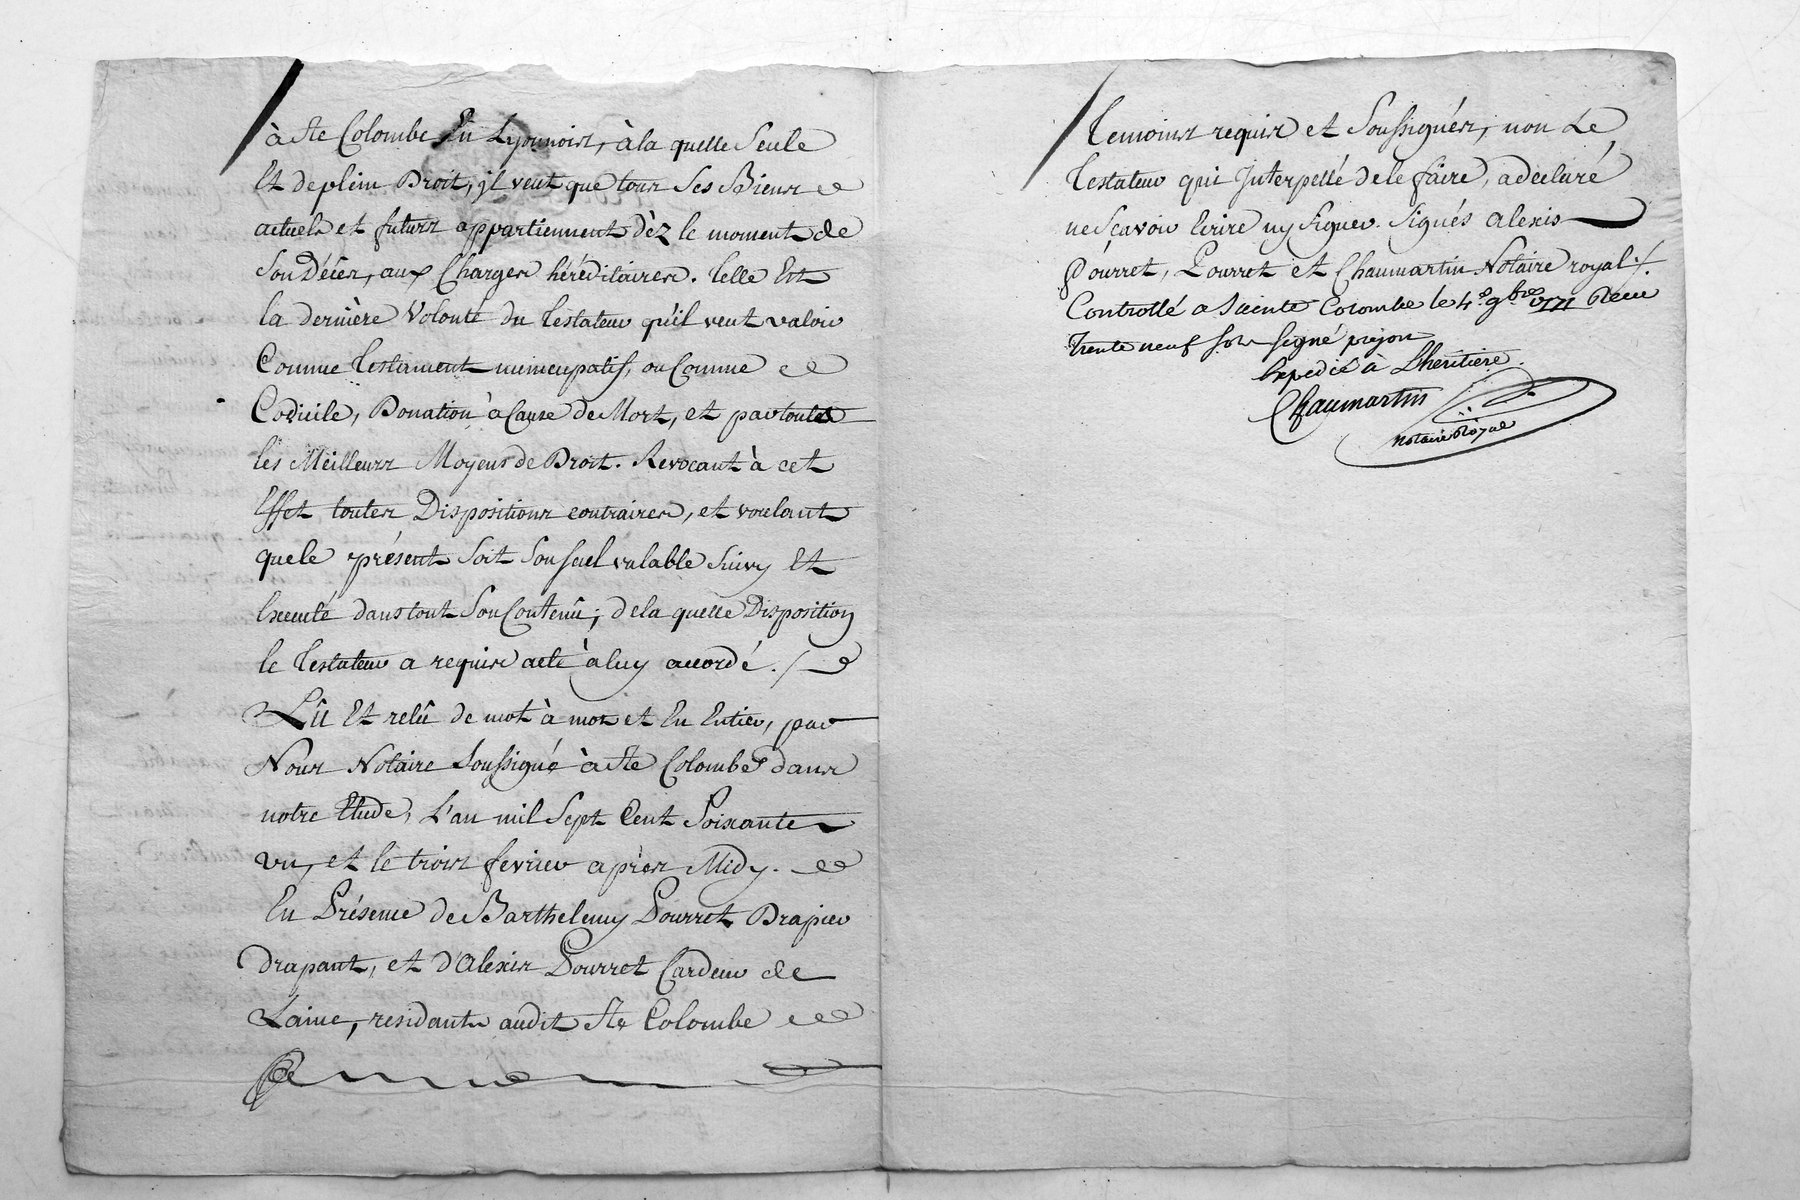 à Ste Colombe En Lyonnois, à la quelle Seule
Et de plein Droit, jl veut que tous Ses Biens
actuels et futurs appartiennent dèz le moment de
Son Décès, aux Charges héréditaires. Telle Est
la dernière Volonté du Testateur qu'il veut valoir
Comme Testament nuncupatif, ou Comme
Codicile, Donation à Cause de Mort, et par toutes
les Meilleurs Moyens de Droit. Revocant à cet
Effet toutes Dispositions contraires, et voulant
que le présent soit Son seul valable suivy Et
Executé dans tout Son Contenû; de la quelle Disposition
le Testateur a requis acte à luy accordé.
Lû Et relû de mot à mot et En Entier, par
Nous Notaire Soussigné à Ste Colombe dans
notre Etude, L'an mil Sept Cent Soixante
un, et le trois fevrier après Midy.
En Présence de Barthelemy Pourret Drapier
drapant, et d'Alexis Pourret Cardeur de
Laine, residants audit Ste Colombe
Temoins requis et Soussignés, non Le
Testateur qui Jnterpellé de le faire, a declaré
ne Sçavoir Ecrire ny Signer. Signés alexis
Pourret, Pourret et Chaumartin Notaire royal
Controllé a Sainte Colombe le 4e 9bre 1771 Reçu
trente neuf sols signé préjon
Expedié à L'heritiere.
Chaumartin
notaire Royal